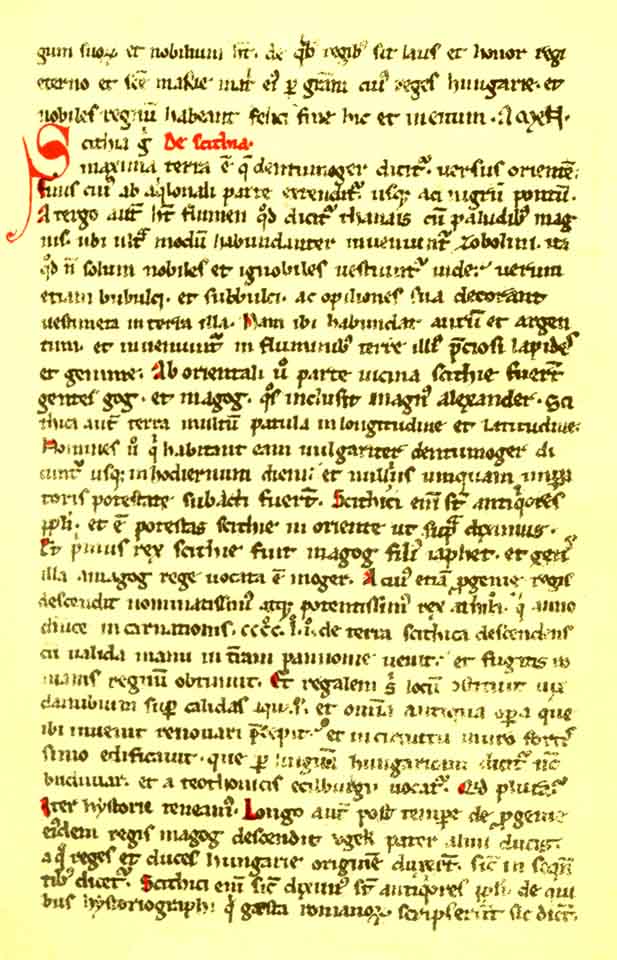 gum suoꝝ et nobilium hr̄t. de qͥb regibꝰ sit laus et honor regi
eterno et sc̄e marie matͥ eiꝰ ꝑ gr̄am cuiꝰ reges hungarie. et
nobiles regnū habeant felici fine hic et in euum. Amen.
Scithia gͥ De scithia.
maxima terra ē q̄ dentumoger dicitꝰ. uersus orientē
finis cuiꝰ ab aqͥlonali parte extenditꝰ. usqꝫ ad nigrū pontū.
A tergo aūt hr̄t flumen qd̄ dicitꝰ thanais cū paludibꝰ mag
nis. ubi ultͣ modū habundanter inueniuntꝰ zobolini. ita
qd̄ n̄ solum nobiles et ignobiles uestiuntꝰ inde. uerum
etiam bubulci. et subbulci. ac opiliones sua decorant
uestimēta in terra illa. Nam ibi habundat aurū et argen
tum. et inueniuntꝰ in fluminibꝰ terre illiꝰ p̄ciosi lapides
et gemme. Ab orientali u̇ parte uicina scithie fuerūt
gentes gog. et magog. qͦs inclusit magnꝰ alexander. Sci
thica aūt terra multū patula in longitudine et latitudine.
Homines u̇ qͥ habitant eam uulgariter dentumoger di
cuntꝰ usqꝫ in hodiernum diem. et nulliꝰ umquam impa
toris potestate subacti fuerūt. Scithici eni sūt antiqͥores
ppl̄i. et ē potestas scithie in oriente ut supͣ diximus.
Et pͥmus rex scithie fuit magog filiꝰ iaphet. et gens
illa a magog rege uocata ē moger. A cuiꝰ etiā ꝓgenie regis
descendit nominatissimꝰ atqꝫ potentissimꝰ rex athila. qͥ anno
dn̄ice incarnationis. cccc̊. l̊. i̊. de terra scithica descendens
cū ualida manu in t̄ram pannonie uenit. et fugatis ro
manis regnū obtinuit. Et regalem sͥ locū constituit iux
danubium supͥ calidas aquas. et omnia antiqua opera que
ibi inuenit renouari p̄cepit. et in circuitu muro fortis
simo edificauit. que ꝑ linguam hungaricam dicitꝰ nūc
buduuar. et a teothonicis ecilburgu uocatꝰ. Quid plura.
Iter hystorie teneamꝰ. Longo aūt post tempore de ꝓgenie
eiusdem regis magog descendit ugek pater almi ducis.
a qͦ reges et duces hungarie originē duxerūt. sic̄ in sequē
tibꝰ dicetꝰ. Scithici eni sic̄ diximꝰ sūt antiqͥores ppl̄i. de qui
bus hystoriographi qͥ gesta romanoꝝ scripserūt sic dicūt.